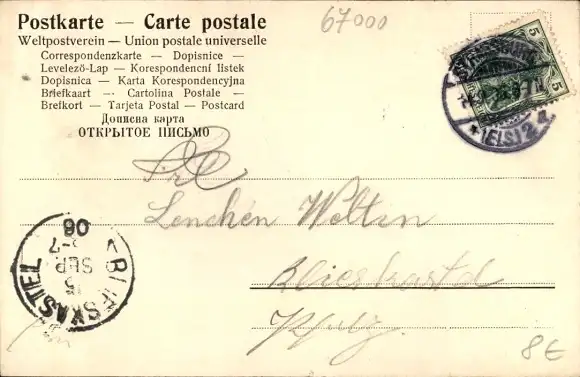 67000
Postkarte — Carte postale
Weltpostverein — Union postale universelle
Correspondenzkarte — Dopisnice —
Levelező-Lap — Korespondenční lístek
Dopisnica — Karta Korespondencyjna
Briefkaart — Cartolina Postale —
Brefkort — Tarjeta Postal — Postcard
Дописна карта
ОТКРЫТОЕ ПИСЬМО
5
5
STRASSBURG
* (ELS) 2
Lenchen Weltin
Blieskastel
Pfalz.
BLIESKASTEL
15
SEP.
06
8€